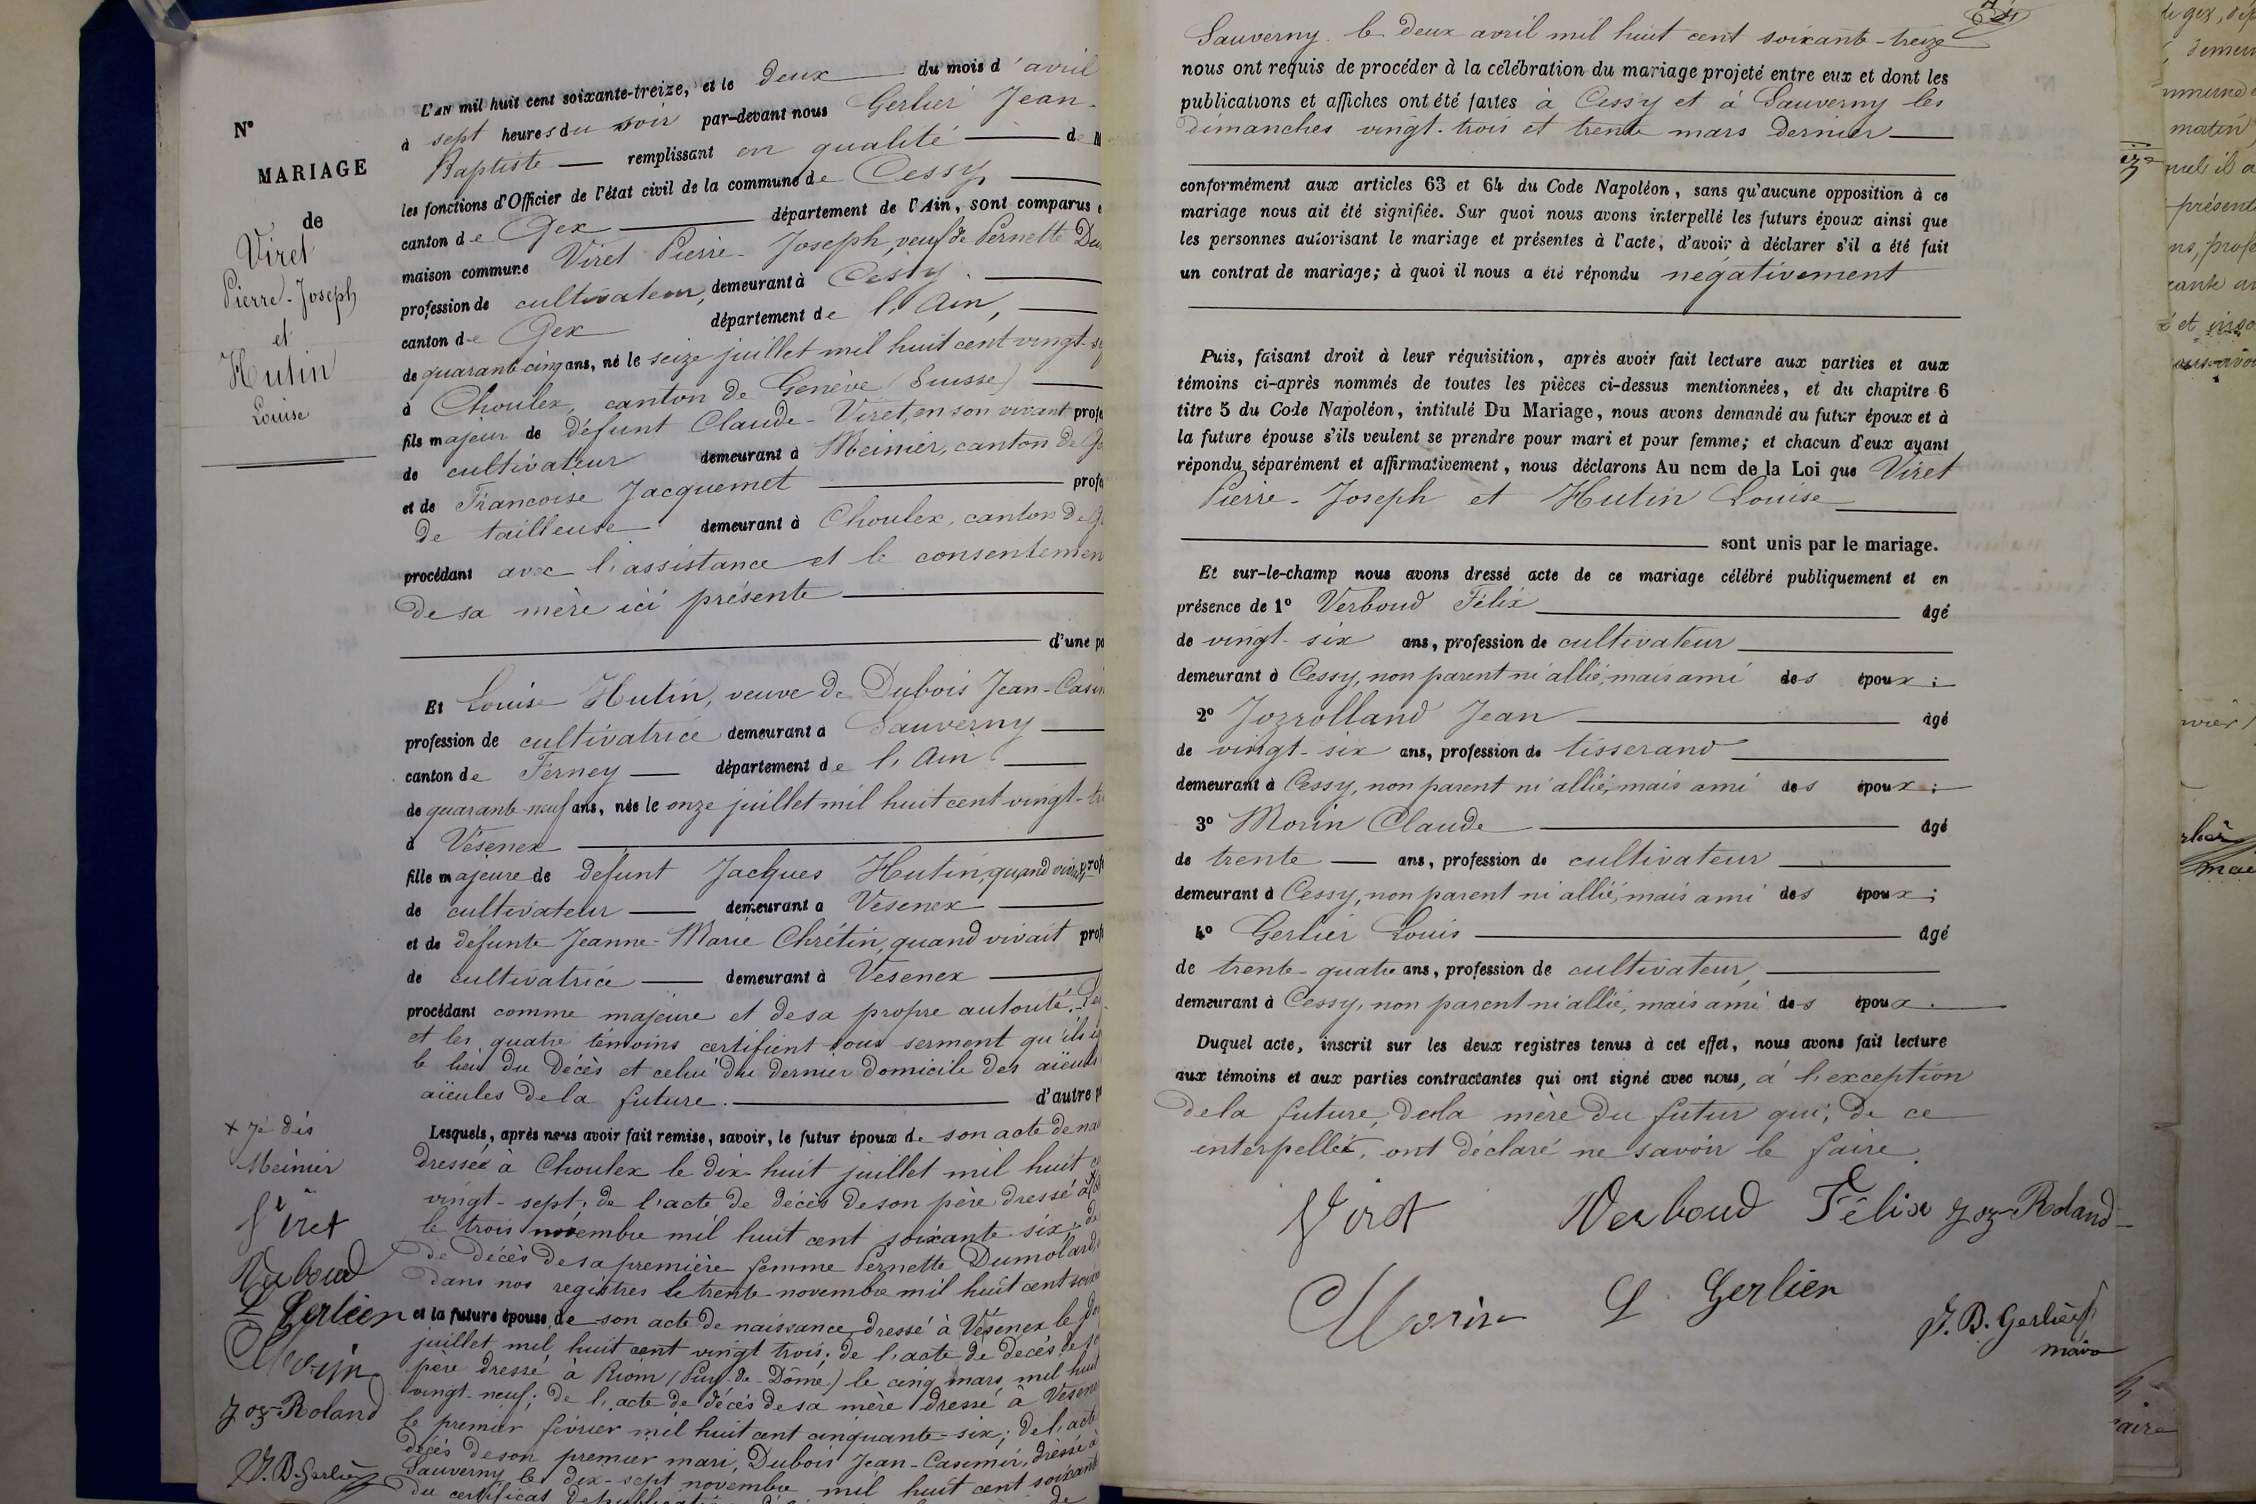 N°
MARIAGE
de
Viret
Pierre-Joseph
et
Hutin
Louise
L'AN mil huit cent soixante-treize, et le deux du mois d'avril
à sept heures du soir par-devant nous Gerlier Jean-
Baptiste remplissant en qualité de
les fonctions d'Officier de l'état civil de la commune de Cessy,
canton de Gex département de l'Ain, sont comparus
maison commune Viret Pierre-Joseph, veuf de Pernette
profession de cultivateur, demeurant à Cessy.
canton de Gex département de l'Ain,
de quarante cinq ans, né le seize juillet mil huit cent vingt-
à Choulex, canton de Genève (Suisse)
fils majeur de défunt Claude-Viret, en son vivant
de cultivateur demeurant à Meinier, canton de
et de Francoise Jacquemet
de tailleuse demeurant à Choulex, canton de
procédant avec l'assistance et le
de sa mère ici présente
d'une
Et Louise Hutin, veuve de Dubois Jean-
profession de cultivatrice demeurant a Sauverny
canton de Ferney département de l'Ain
de quarante-neuf ans, née le onze juillet mil huit cent vingt-
à Vésenex
fille majeure de defunt Jacques Hutin, quand
de cultivateur demeurant a Vesenex
et de défunte Jeanne-Marie Chrétin, quand vivait
de cultivatrice demeurant à Vesenex
procédant comme majeure et de sa propre autorité.
et les quatre témoins certifient sous serment qu'ils
le lieu du décès et celui du dernier domicile des
aïeules de la future. d'autre
Lesquels, après nous avoir fait remise, savoir, le futur époux de son acte de
dressée à Choulex le dix-huit juillet mil huit
vingt-sept; de l'acte de décès de son père dressé à
le trois novembre mil huit cent soixante-six;
de décès de sa première femme Pernette Dumolard,
dans nos registres le trente novembre mil huit cent
et la future épouse de son acte de naissance dressé à Vésenex le
juillet mil huit cent vingt trois; de l'acte de décès de
père dressé à Riom (Puy-de-Dôme) le cinq mars mil huit
vingt-neuf; de l'acte de décès de sa mère dressé à
le premier février mil huit cent cinquante-six; de l'acte
décès de son premier mari, Dubois Jean-Casimir, dressé à
Sauverny le dix-sept novembre mil huit cent
du certificat
+ je dis
Meinier
Viret
Verboud
L Gerlier
Morin
Joz-Roland
J. B. Gerlier
Sauverny le deux avril mil huit cent soixante-treize
nous ont requis de procéder à la célébration du mariage projeté entre eux et dont les
publications et affiches ont été faites à Cessy et à Sauverny les
dimanches vingt-trois et trente mars dernier
conformément aux articles 63 et 64 du Code Napoléon, sans qu'aucune opposition à ce
mariage nous ait été signifiée. Sur quoi nous avons interpellé les futurs époux ainsi que
les personnes autorisant le mariage et présentes à l'acte, d'avoir à déclarer s'il a été fait
un contrat de mariage; à quoi il nous a été répondu négativement
Puis, faisant droit à leur réquisition, après avoir fait lecture aux parties et aux
témoins ci-après nommés de toutes les pièces ci-dessus mentionnées, et du chapitre 6
titre 5 du Code Napoléon, intitulé Du Mariage, nous avons demandé au futur époux et à
la future épouse s'ils veulent se prendre pour mari et pour femme; et chacun d'eux ayant
répondu séparément et affirmativement, nous déclarons Au nom de la Loi que Viret
Pierre-Joseph et Hutin Louise
sont unis par le mariage.
Et sur-le-champ nous avons dressé acte de ce mariage célébré publiquement et en
présence de 1° Verboud Félix âgé
de vingt-six ans, profession de cultivateur
demeurant à Cessy, non parent ni allié, mais ami des époux;
2° Jozrolland Jean âgé
de vingt-six ans, profession de tisserand
demeurant à Cessy, non parent ni allié, mais ami des époux;
3° Morin Claude âgé
de trente ans, profession de cultivateur
demeurant à Cessy, non parent ni allié, mais ami des époux;
4° Gerlier Louis âgé
de trente-quatre ans, profession de cultivateur,
demeurant à Cessy, non parent ni allié, mais ami des époux.
Duquel acte, inscrit sur les deux registres tenus à cet effet, nous avons fait lecture
aux témoins et aux parties contractantes qui ont signé avec nous, à l'exception
de la future, de la mère du futur qui, de ce
interpellés, ont déclaré ne savoir le faire.
Viret Verboud Félix Joz-Roland
Morin L Gerlier
J. B. Gerlier
maire